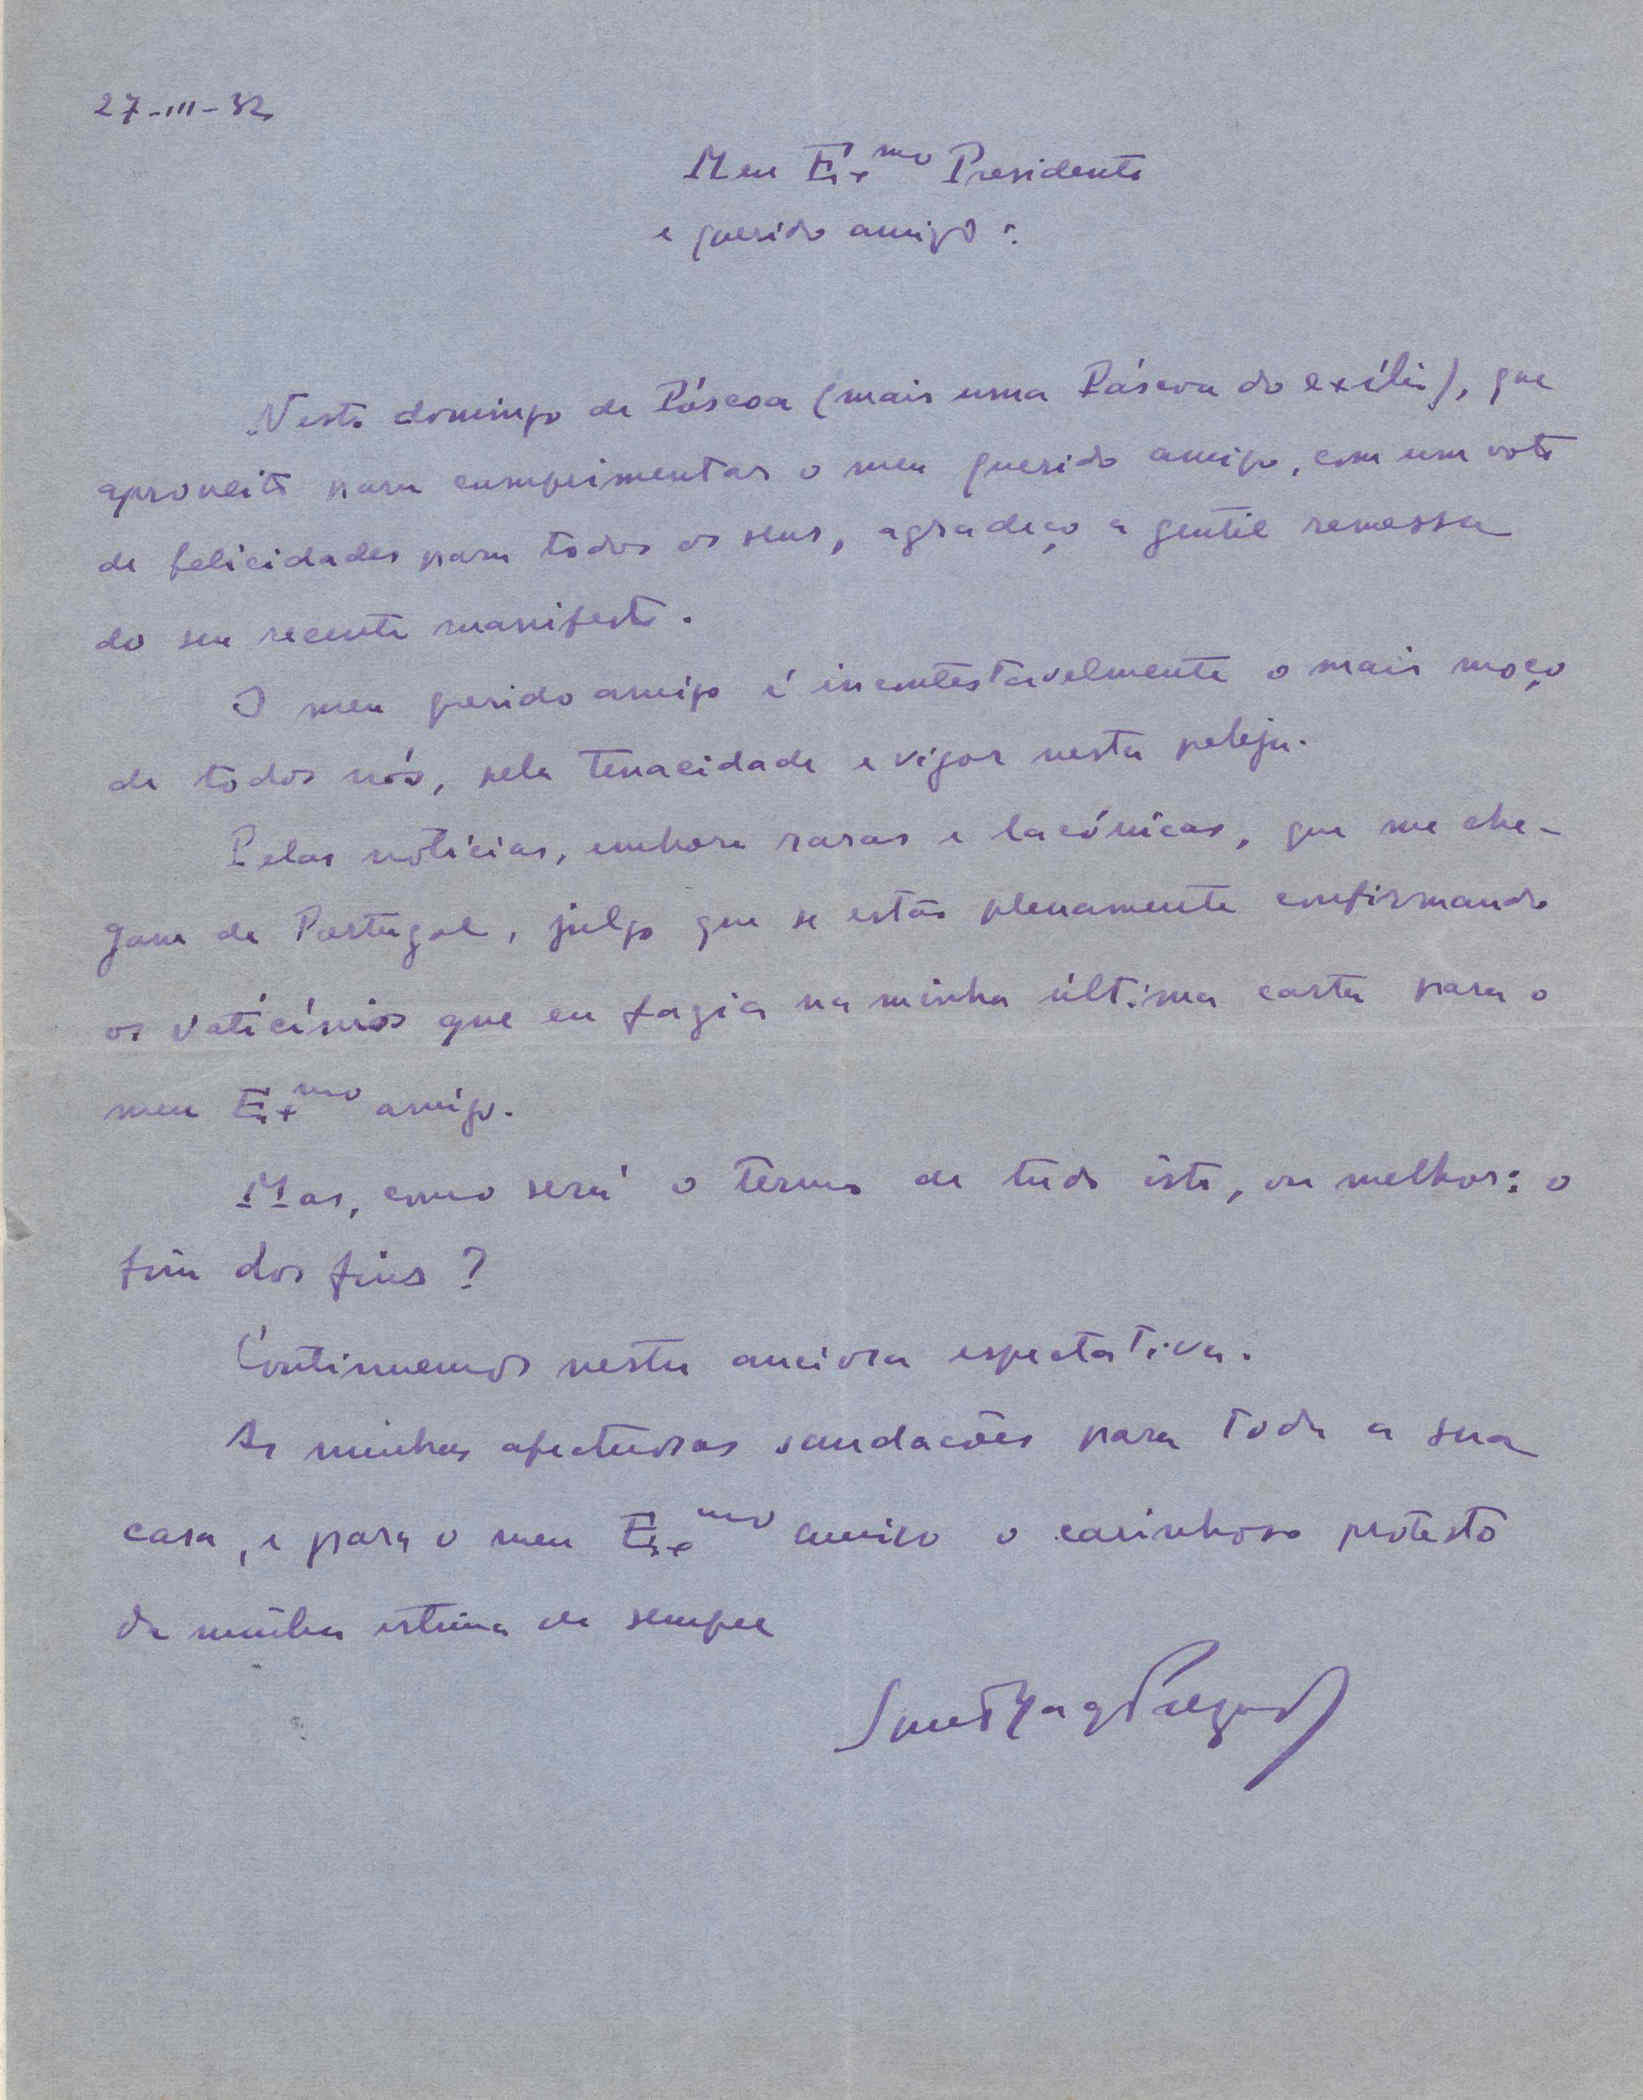 27-III-32
Meu Ex.mo Presidente
e querido amigo:
Neste domingo de Páscoa (mais uma Páscoa do exílio), que
aproveito para cumprimentar o meu querido amigo, com um voto
de felicidades para todos os seus, agradeço a gentil remessa
do seu recente manifesto.
O meu querido amigo é incontestavelmente o mais moço
de todos nós, pela tenacidade e vigor nesta peleja.
Pelas notícias, embora raras e lacónicas, que me che-
gam de Portugal, julgo que se estão plenamente confirmando
os vaticínios que eu fazia na minha última carta para o
meu Ex.mo amigo.
Mas, como será o termo de tudo isto, ou melhor: o
fim dos fins?
Continuemos nesta anciosa espectativa.
As minhas afectuosas saudações para toda a sua
casa, e para o meu Ex.mo amigo o carinhoso protesto
da minha estima de sempre